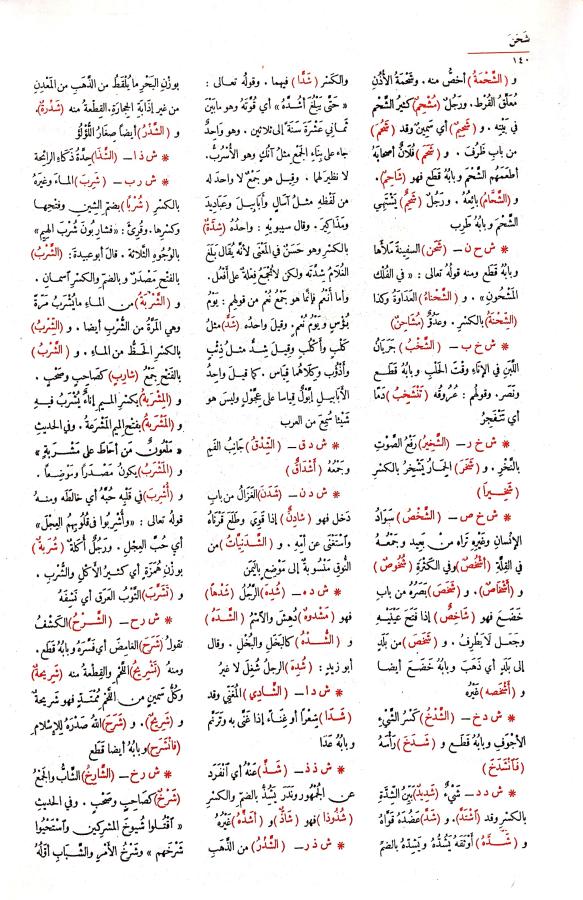 شَحَنَ
١٤٠
و (الشَّحْمَةُ) أخصُّ منه . وشَحْمَةُ الأُذُنِ
مُعَلَّقُ القُرْط . ورَجُلٌ (مُشْحِمٌ) كثيرُ الشَّحْمِ
في بَيْتِه . و (شَحِيمٌ) أي سَمِينٌ وقد (شَحُمَ)
من باب ظَرُفَ . و (شَحَمَ) فُلَانٌ أصحابَهُ
أطعَمَهُم الشَّحْمَ وبابُهُ قطَع فهو (شَاحِمٌ).
و (الشَّحَّامُ) بائِعُهُ . ورَجُلٌ (شَحِمٌ) يَشْتَهِي
الشَّحْمَ وبابُهُ طرِب
* ش ح ن – (شَحَنَ) السفينةَ مَلَأَها
وبابُهُ قطَع ومنه قولُهُ تعالى : « في الفُلْكِ
المَشْحُونِ » . و (الشَّحْنَاءُ) العَدَاوَةُ وكذا
(الشِّحْنَةُ) بالكسْرِ . وعَدُوٌّ (مُشَاحِنٌ)
* ش خ ب – (الشَّخْبُ) جَرَيَانُ
اللَّبَنِ في الإِناءِ وقتَ الحَلْبِ وبابُهُ قَطَع
ونَصَر . وقولُهم : عُرُوقُه (تَنْشَخِبُ) دَمًا
أي تَتَفَجَّرُ
* ش خ ر – (الشَّخِيرُ) رَفْعُ الصَّوْتِ
بالنَّخْرِ . و (شَخَرَ) الحِمَارُ يَشْخِرُ بالكسْرِ
(شَخِيرًا)
* ش خ ص – (الشَّخْصُ) سَوَادُ
الإنْسانِ وغَيْرِهِ تَرَاه مِنْ بَعيد وجَمْعُهُ
في القِلَّةِ (أَشْخُصٌ) وفي الكَثْرَةِ (شُخُوصٌ)
و (أَشْخَاصٌ) . و (شَخَصَ) بَصَرُهُ من باب
خَضَع فهو (شَاخِصٌ) إذا فَتَحَ عَيْنَيْهِ
وجَعَل لَا يَطْرِفُ . و (شَخَصَ) من بَلَدٍ
إلى بَلَدٍ أي ذَهَب وبابُهُ خَضَع أيضا
و (أَشْخَصَه) غَيْرُه
* ش د خ – (الشَّدْخُ) كَسْرُ الشَّيْءِ
الأجْوفِ وبابُهُ قطَع و (شَدَخَ) رَأْسَهُ
(فَانْشَدَخَ)
* ش د د – شَيْءٌ (شَدِيدٌ) بَيِّنُ الشِّدَّةِ
بالكسْرِ وقد (اشْتَدَّ). و (شَدَّ) عَضُدَهُ قَوَّاهُ
و (شَدَّهُ) أوْثَقَهُ يَشُدُّهُ ويَشِدُّهُ بالضَّمِ
والكسْرِ (شَدًّا) فيهما . وقولُهُ تعالى :
« حَتَّى يَبْلُغَ أَشُدَّهُ » أي قُوَّتَهُ وهو ما بَيْنَ
ثَمَانِي عَشْرَةَ سَنَةً إلى ثلاثين . وهو واحِدٌ
جاء على بِنَاءِ الجمع مثْلُ آنُكٍ وهو الأُسْرُبُ.
لا نظيرَ لَهُمَا . وقيل هو جَمْعٌ لا واحد له
من لفْظِهِ مثلُ آسَالٍ وأبابِيلَ وعَبَادِيدَ
ومَذَاكِيرَ . وقال سيبويه : واحدُهُ (شِدَّةٌ)
بالكسْرِ وهو حَسَنٌ في المَعْنَى لأنّه يُقال بَلَغَ
الغُلَامُ شِدَّتَه ولكن لا تُجْمَعُ فِعْلَة على أَفْعُل.
وأما أنْعُم فإنَّما هو جَمْعُ نُعْم من قَولِهم : يَوْمُ
بُؤْسٍ ويَوْمُ نُعْمٍ. وقيل واحدُه (شَدٌّ) مثلُ
كَلْبٍ وأكْلُبٍ وقيل شِدٌّ مثلُ ذِئْبٍ
وأذْؤُبٍ وكلاهُما قِياس . كما قيل واحدُ
الأبابِيل إبَّوْلٌ قياسا على عِجَّوْلٍ وليس هو
شيئا سُمِعَ من العرب
* ش د ق – (الشِّدْقُ) جَانِبُ الفَمِ
وجَمْعُهُ (أَشْدَاقٌ)
* ش د ن – (شَدَنَ) الغَزَالُ من باب
دَخل فهو (شَادِنٌ) إذا قَوِيَ وطَلَعَ قَرْنَاهُ
واسْتَغْنَى عن أُمِّهِ . و (الشَّدَنِيَّاتُ) من
النُّوقِ مَنْسُوبَةٌ إلى مَوْضِعٍ باليَمَنِ
* ش د ه – (شُدِهَ) الرَّجُلُ (شَدْهًا)
فهو (مَشْدُوهٌ) دُهِشَ والاسْمُ (الشَّدَهُ)
و (الشُّدْهُ) كالبَخَلِ والبُخْلِ . وقال
أبو زيد : (شُدِهَ) الرجلُ شُغِلَ لا غيرُ
* ش د ا – (الشَّادِي) المُغَنِّي وقد
(شَدَا) شِعْرًا أو غِنَاءً إذا غَنَّى به وتَرَنَّمَ
وبابُهُ عَدَا
* ش ذ ذ – (شَذَّ) عَنْهُ أي انْفَرَد
عن الجُمْهُورِ ونَدَرَ يَشُذُّ بالضمِ والكسْرِ
(شُذُوذًا) فهو (شَاذٌّ) و (أَشَذَّهُ) غَيْرُهُ
* ش ذ ر – (الشَّذْرُ) من الذَّهَبِ
بوزْنِ البَحْرِ ما يُلْقَطُ من الذَّهَبِ من المَعْدِنِ
من غَير إذابَةِ الحِجَارَةِ. القِطْعَةُ منه (شَذْرَةٌ).
و (الشَّذْرُ) أيضاً صِغَارُ اللُّؤْلُؤِ
* ش ذ ا – (الشَّذَا) حِدَّةُ ذَكاءِ الرائحةِ
* ش ر ب – (شَرِبَ) الماءَ وغيرَهُ
بالكسْرِ (شُرْبًا) بضم الشِينِ وفتحِها
وكسْرِها. وقُرِئَ : «فشَارِبُونَ شُرْبَ الهِيمِ»
بالوُجُوهِ الثَّلَاثة . قال أبو عبيدةَ: (الشَّرْبُ)
بالفتحِ مَصْدَرٌ وبالضمِ والكسْرِ اسمان .
و (الشَّرْبَةُ) من الماءِ ما يُشْرَبُ مَرَّةً
وهي المَرَّةُ من الشُّرْبِ أيضا . و (الشِّرْبُ)
بالكسْرِ الحَظُّ من الماءِ . و (الشَّرْبُ)
بالفتحِ جَمْعُ (شَارِبٍ) كصاحِبٍ وصَحْبٍ .
و (المِشْرَبةُ) بكسْرِ الميمِ إناءٌ يُشْرَبُ فيه
و (المَشْرَبَةُ) بفتْحِ الميمِ المَشْرَعَةُ . وفي الحديثِ
« مَلْعُونٌ مَن أحَاطَ على مَشْرَبَةٍ »
و (المَشْرَبُ) يكونُ مَصْدَرًا ومَوْضِعًا .
و (أُشْرِبَ) في قلبِهِ حُبَّهُ أي خالطَه ومنه
قولُهُ تعالى : «وأُشْرِبُوا في قُلُوبِهِمُ العِجْلَ»
أي حُبَّ العِجْلِ . ورَجُلٌ أُكَلَةٌ (شُرَبَةٌ)
بوزنِ هُمَزَةٍ أي كثيرُ الأكْلِ والشُّرْبِ .
و (تَشَرَّبَ) الثَّوْبُ العَرَقَ أي نَشِفَهُ
* ش ر ح – (الشَّرْحُ) الكَشْفُ
تقولُ (شَرَحَ) الغامِضَ أي فَسَّرَهُ وبابُهُ قطَع.
ومنه (تَشْرِيحُ) اللَّحْمِ والقِطْعَةُ منه (شَرِيحَةٌ)
وكُلُّ سَمِينٍ من اللَّحْمِ مُمْتَدٍّ فهو شَرِيحَةٌ
و (شَرِيحٌ) . و (شَرَحَ) اللهُ صَدْرَهُ للإِسْلَامِ
(فَانْشَرَحَ) وبابُهُ أيضا قَطَع
* ش ر خ – (الشَّارِخُ) الشَّابُّ والجَمْعُ
(شَرْخٌ) كصاحِبٍ وصَحْبٍ . وفي الحديثِ
« اقْتُلوا شُيُوخَ المشركين واسْتَحْيُوا
شَرْخَهم » وشَرْخُ الأمْرِ والشَّبَابِ أوَّلُهُ